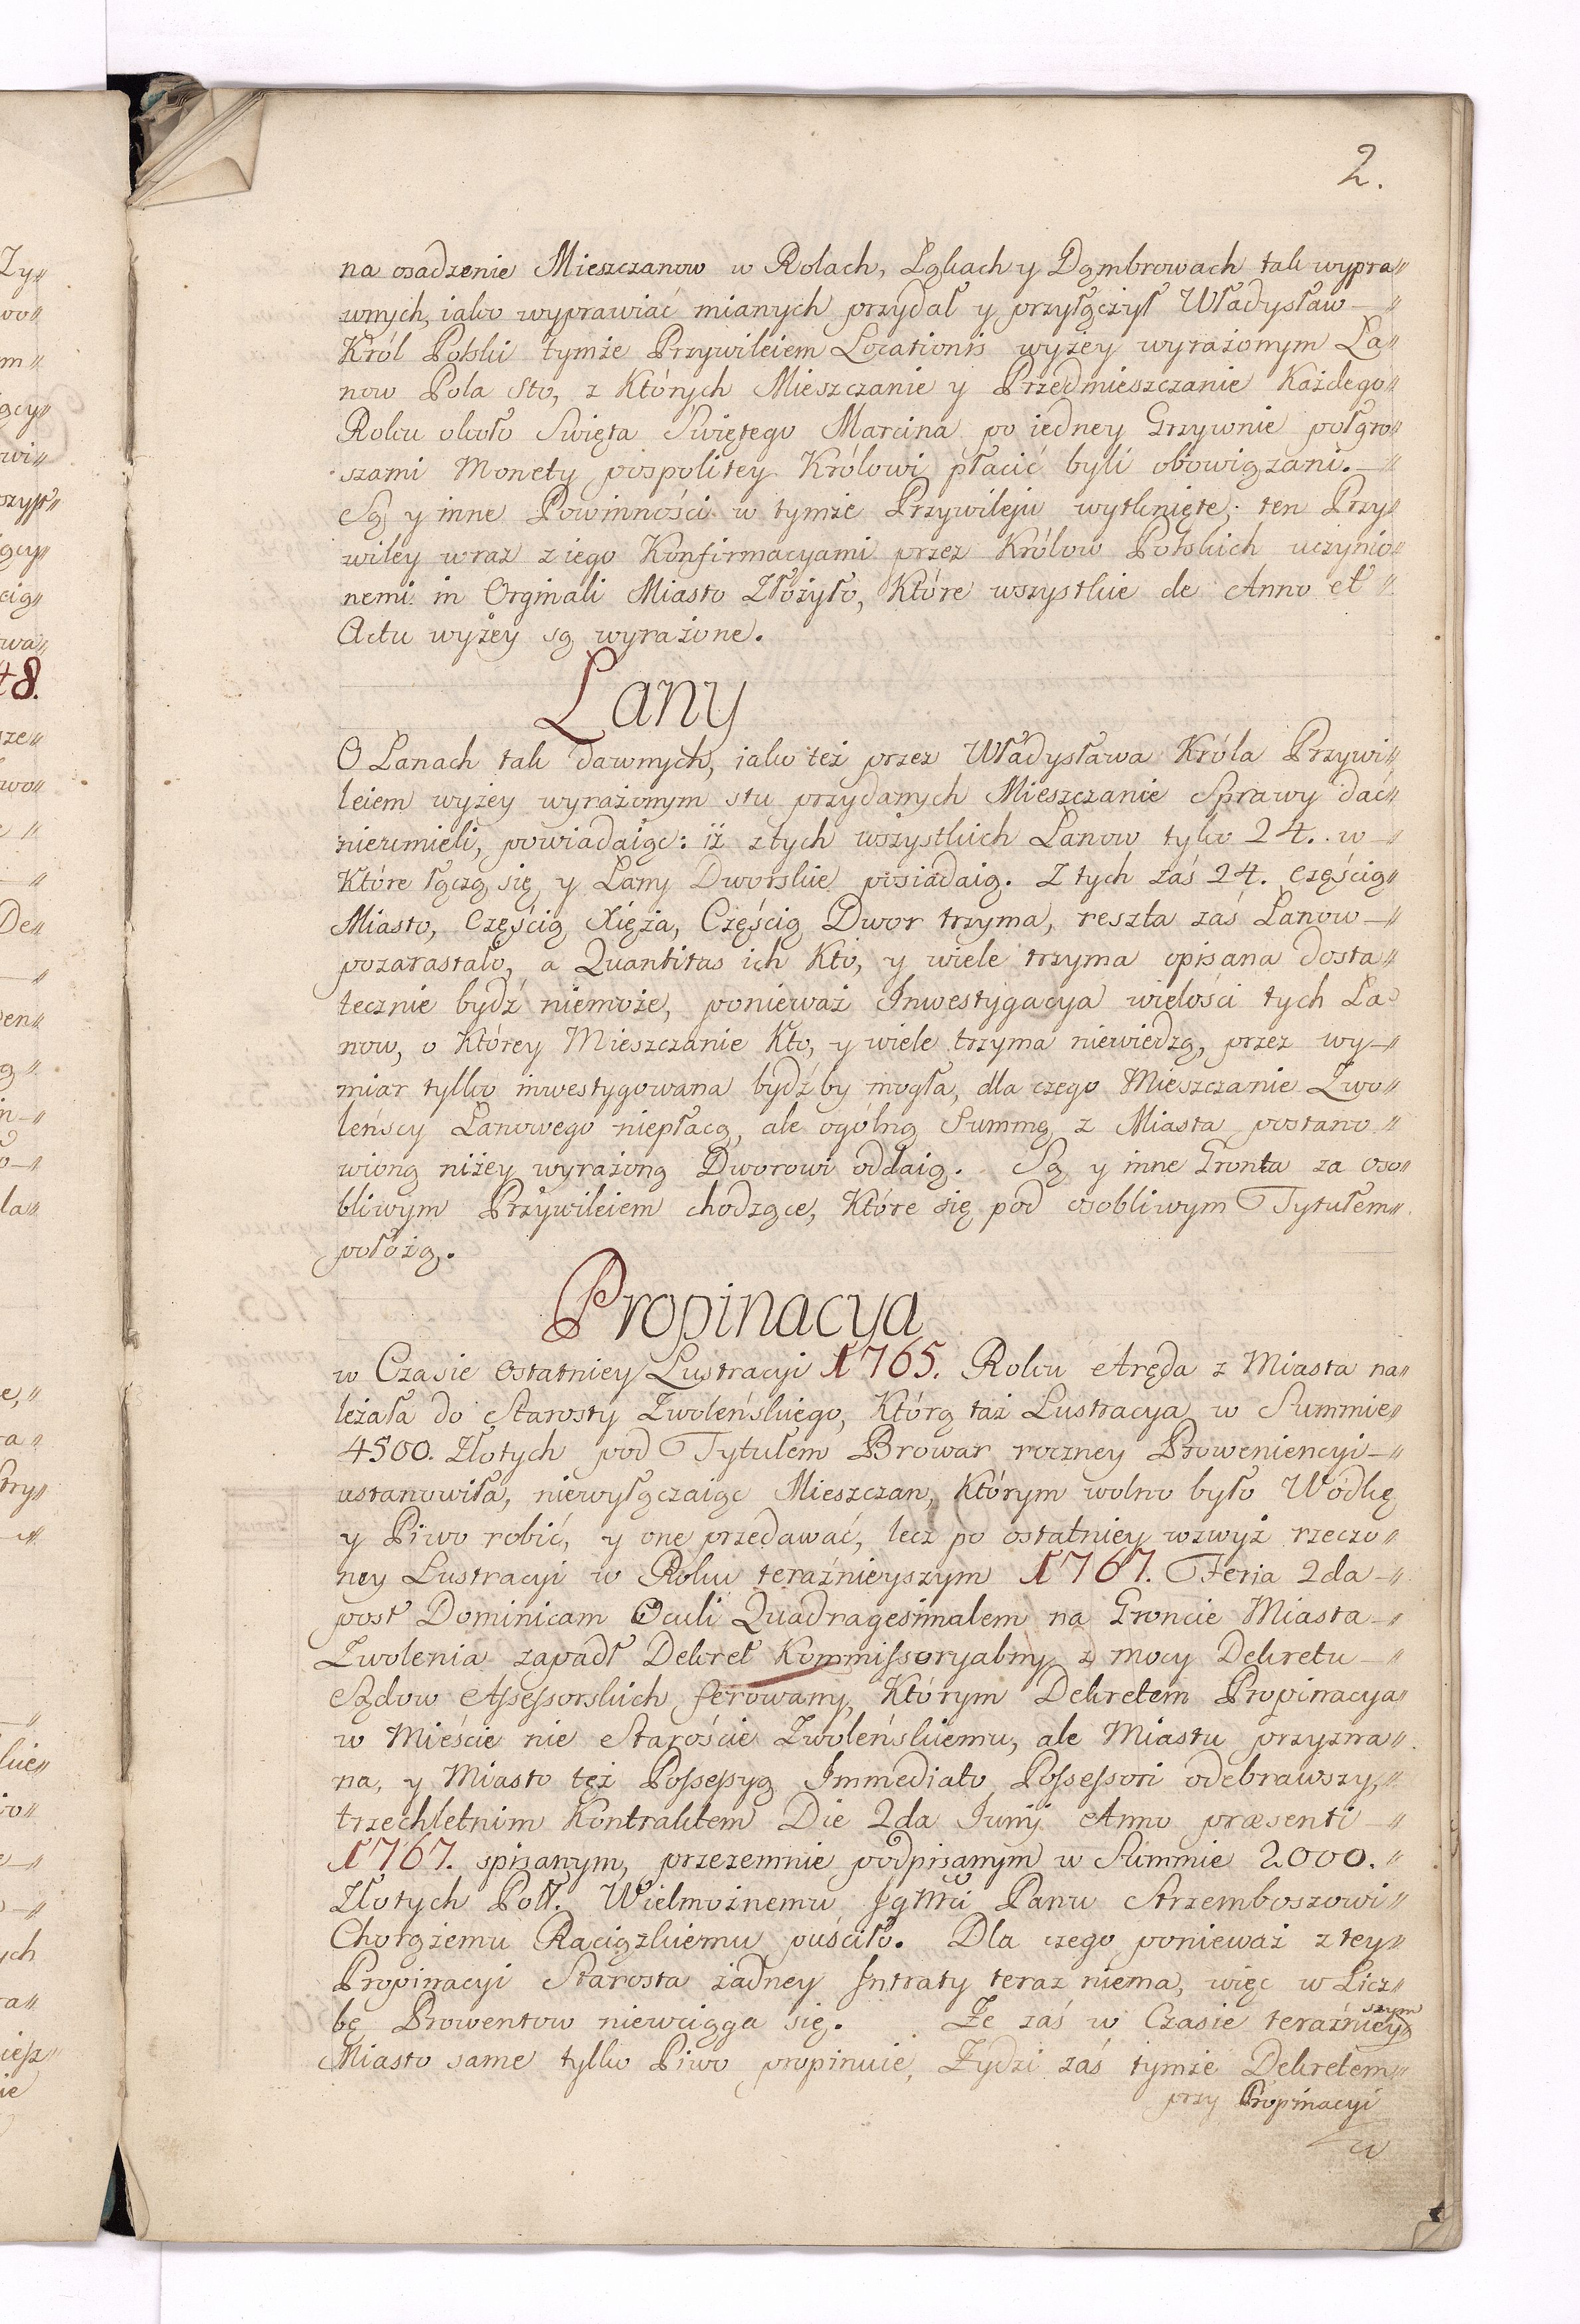 2.
na osadzenie Mieszczanow w Rolach, Łąkach y Dąmbrowach tak wypra„
wnych, iako wyprawiać mianych przydał y przyłączył Władysław —„
Król Polski tymże Przywileiem Locationis wyżey wyrażonym Ła„
now Pola Sto, z Których Mieszczanie y Przedmieszczanie Każdego„
Roku około Swięta Swiętego Marcina po iedney Grzywnie połgro„
szami Monety pospolitey Królowi płacić byli obowiązani. —„
Są y inne Powinności w tymże Przywileju wytknięte; ten Przy„
wiley wraz z iego Konfirmacyami przez Królow Polskich uczynio„
nemi in Orginali Miasto Złożyło, Które wszystkie de Anno et „
Actu wyżey są wyrażone.
Łany
O Łanach tak dawnych, iako też przez Władysława Króla Przywi„
leiem wyżey wyrażonym stu przydanych Mieszczanie Sprawy dać„
nieumieli, powiadaiąc: iż z tych wszystkich Łanow tylko 24. w —„
Które łączą się y Łany Dworskie posiadaią. Z tych zaś 24. Częścią„
Miasto, Częścią Xięża, Częścią Dwor trzyma, reszta zaś Łanow —„
pozarastało, a Quantitas ich Kto, y wiele trzyma opisana dosta„
tecznie bydź niemoże, ponieważ Inwestygacya wielości tych Ła„
now, o Którey Mieszczanie Kto, y wiele trzyma niewiedzą, przez wy—„
miar tylko inwestygowana bydź by mogła, dla czego Mieszczanie Zwo„
leńscy Łanowego niepłacą, ale ogólną Summę z Miasta postano„
wioną niżey wyrażoną Dworowi oddaią. Są y inne Gronta za oso„
bliwym Przywileiem chodzące, Które się pod osobliwym Tytułem„
położą.
Propinacya
w Czasie ostatniey Lustracyi 1765. Roku Aręda z Miasta na„
leżała do Starosty Zwoleńskiego, Którą taż Lustracya w Summie„
4500. Złotych pod Tytułem Browar roczney Proweniencyi —„
ustanowiła, niewyłączaiąc Mieszczan, Którym wolno było Wódkę
y Piwo robić, y one przedawać, lecz po ostatniey wzwyż rzeczo„
ney Lustracyi w Roku teraźnieyszym 1767. Feria 2da —„
post Dominicam Oculi Quadragesimalem na Groncie Miasta —„
Zwolenia zapadł Dekret Kommissoryalny z mocy Dekretu —„
Sądow Assessorskich ferowany, Którym Dekretem Propinacya„
w Mieście nie Staroście Zwoleńskiemu, ale Miastu przyzna„
na, y Miasto też Possessyą Immediato Possessori odebrawszy,„
trzechletnim Kontraktem Die 2da Junij Anno præsenti —„
1767. spisanym, przezemnie podpisanym w Summie 2000. „
Złotych Poll. Wielmożnemu Jgmci Panu Strzemboszowi„
Chorążemu Raciązkiemu puściło. Dla czego ponieważ z tey„
Propinacyi Starosta żadney Intraty teraz niema, więc w Licz„
bę Prowentow niewciąga się. Że zaś w Czasie teraźniey„
szym
Miasto same tylko Piwo propinuie, Żydzi zaś tymże Dekretem„
przy Propinacyi
w